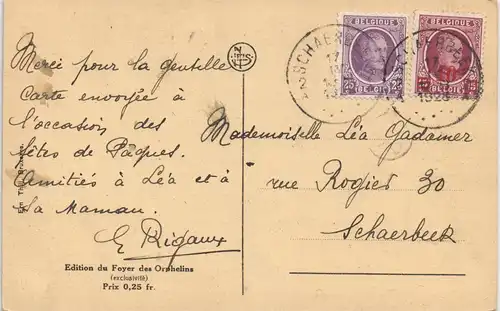 Merci pour la gentille
carte envoyée à
l'occasion des
fêtes de Pâques.
Amitiés à Léa et à
sa Maman.
E Rigaux
Edition du Foyer des Orphelins
(exclusivité)
Prix 0,25 fr.
NELS
BELGIQUE
BELGIË
BELGIQUE
BELGIË
SCHAERB
1926
Mademoiselle Léa Gadamer
rue Rogier 30
Schaerbeek